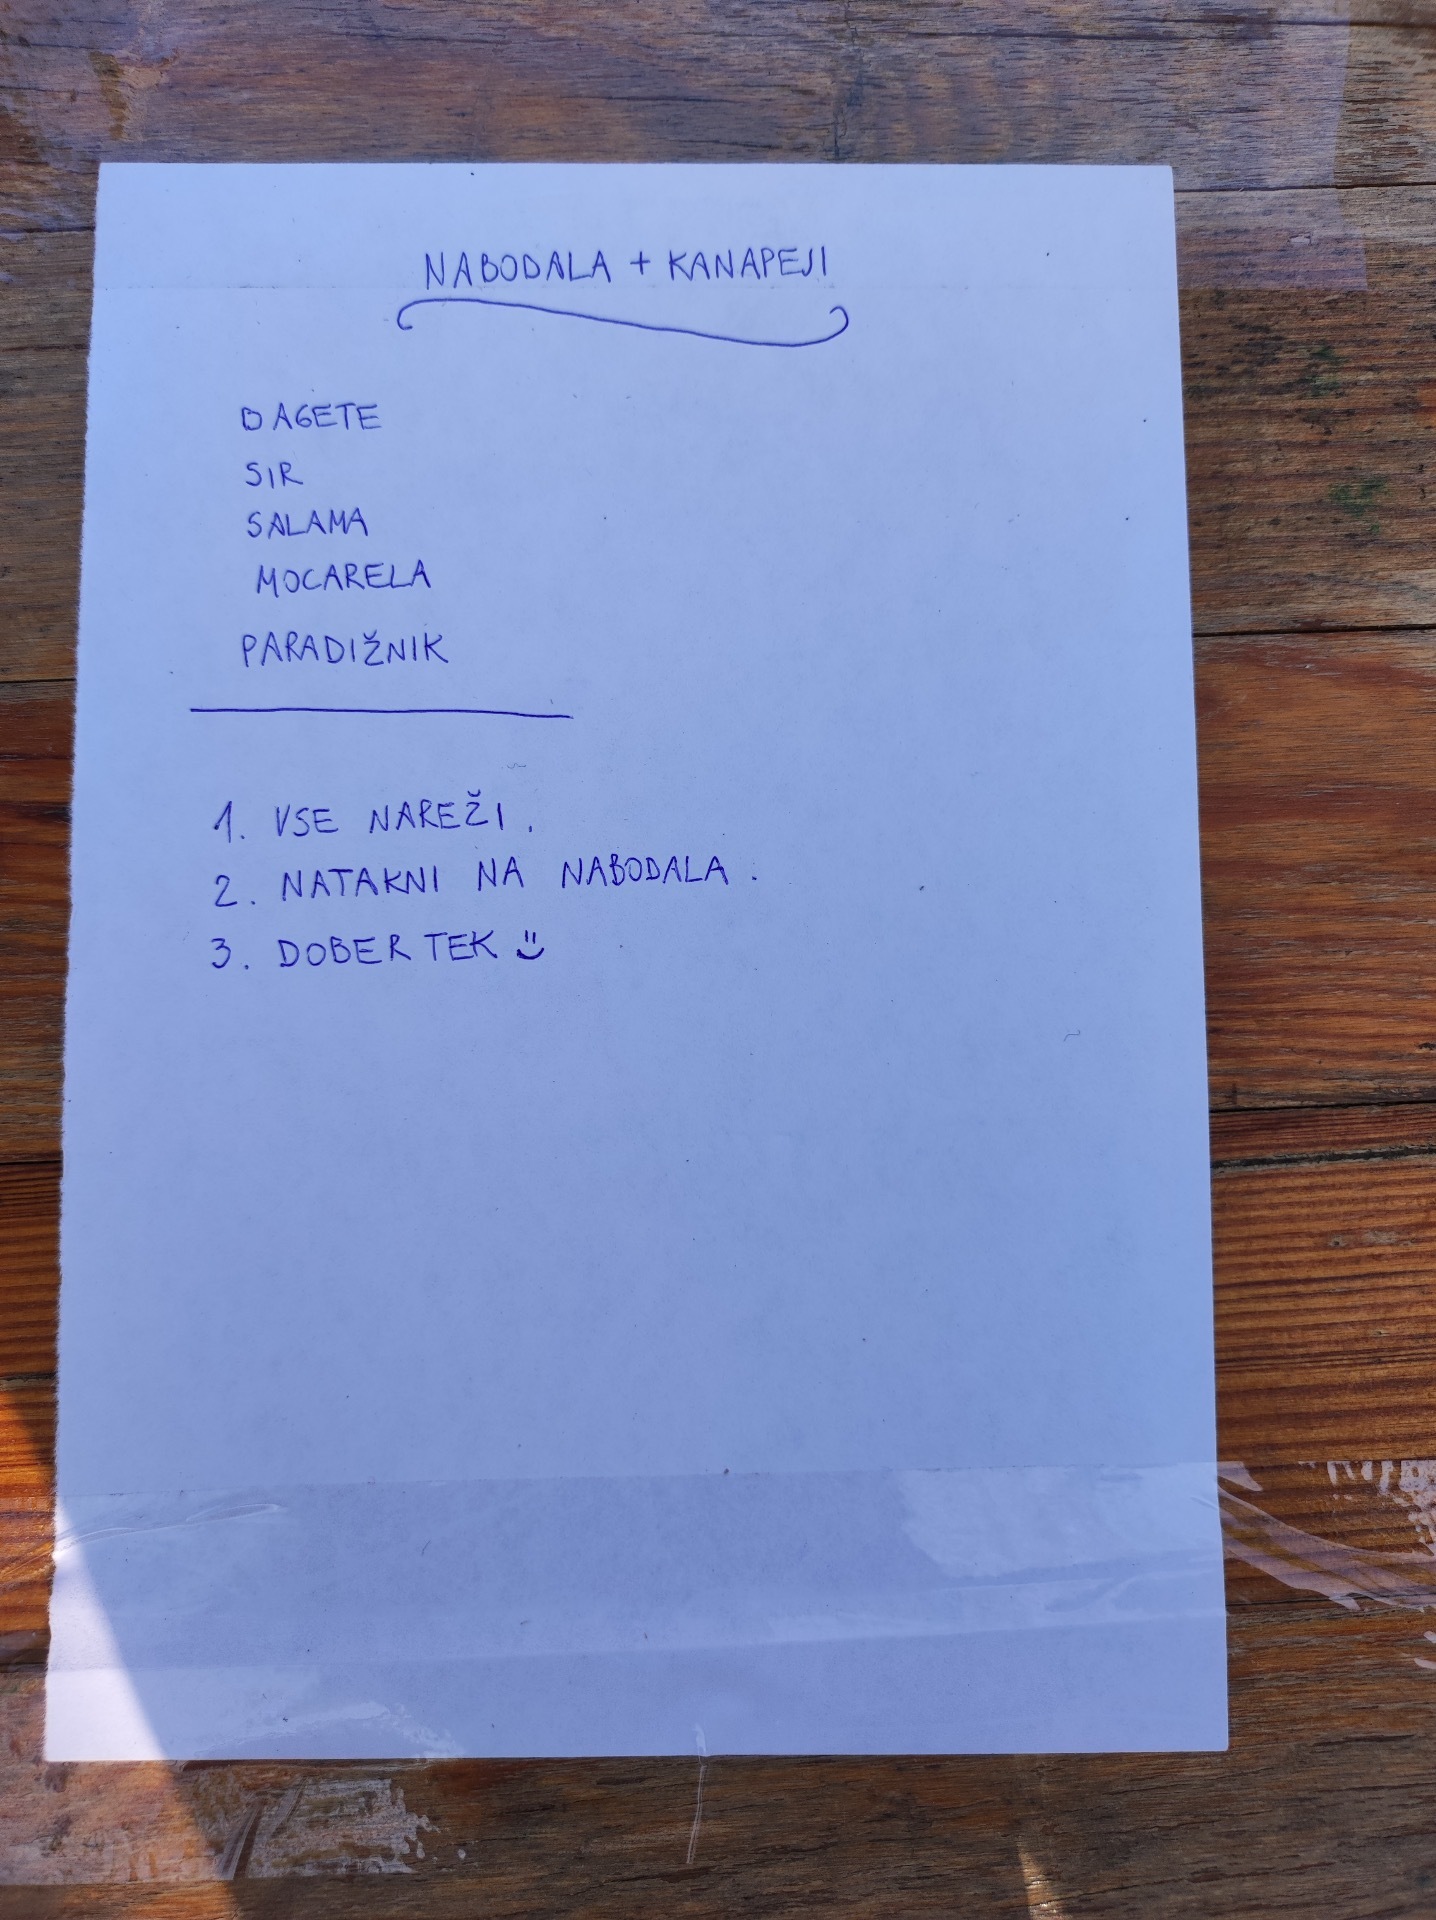 NABODALA + KANAPEJI
BAGETE
SIR
SALAMA
MOCARELA
PARADIŽNIK
1. VSE NAREŽI.
2. NATAKNI NA NABODALA.
3. DOBER TEK